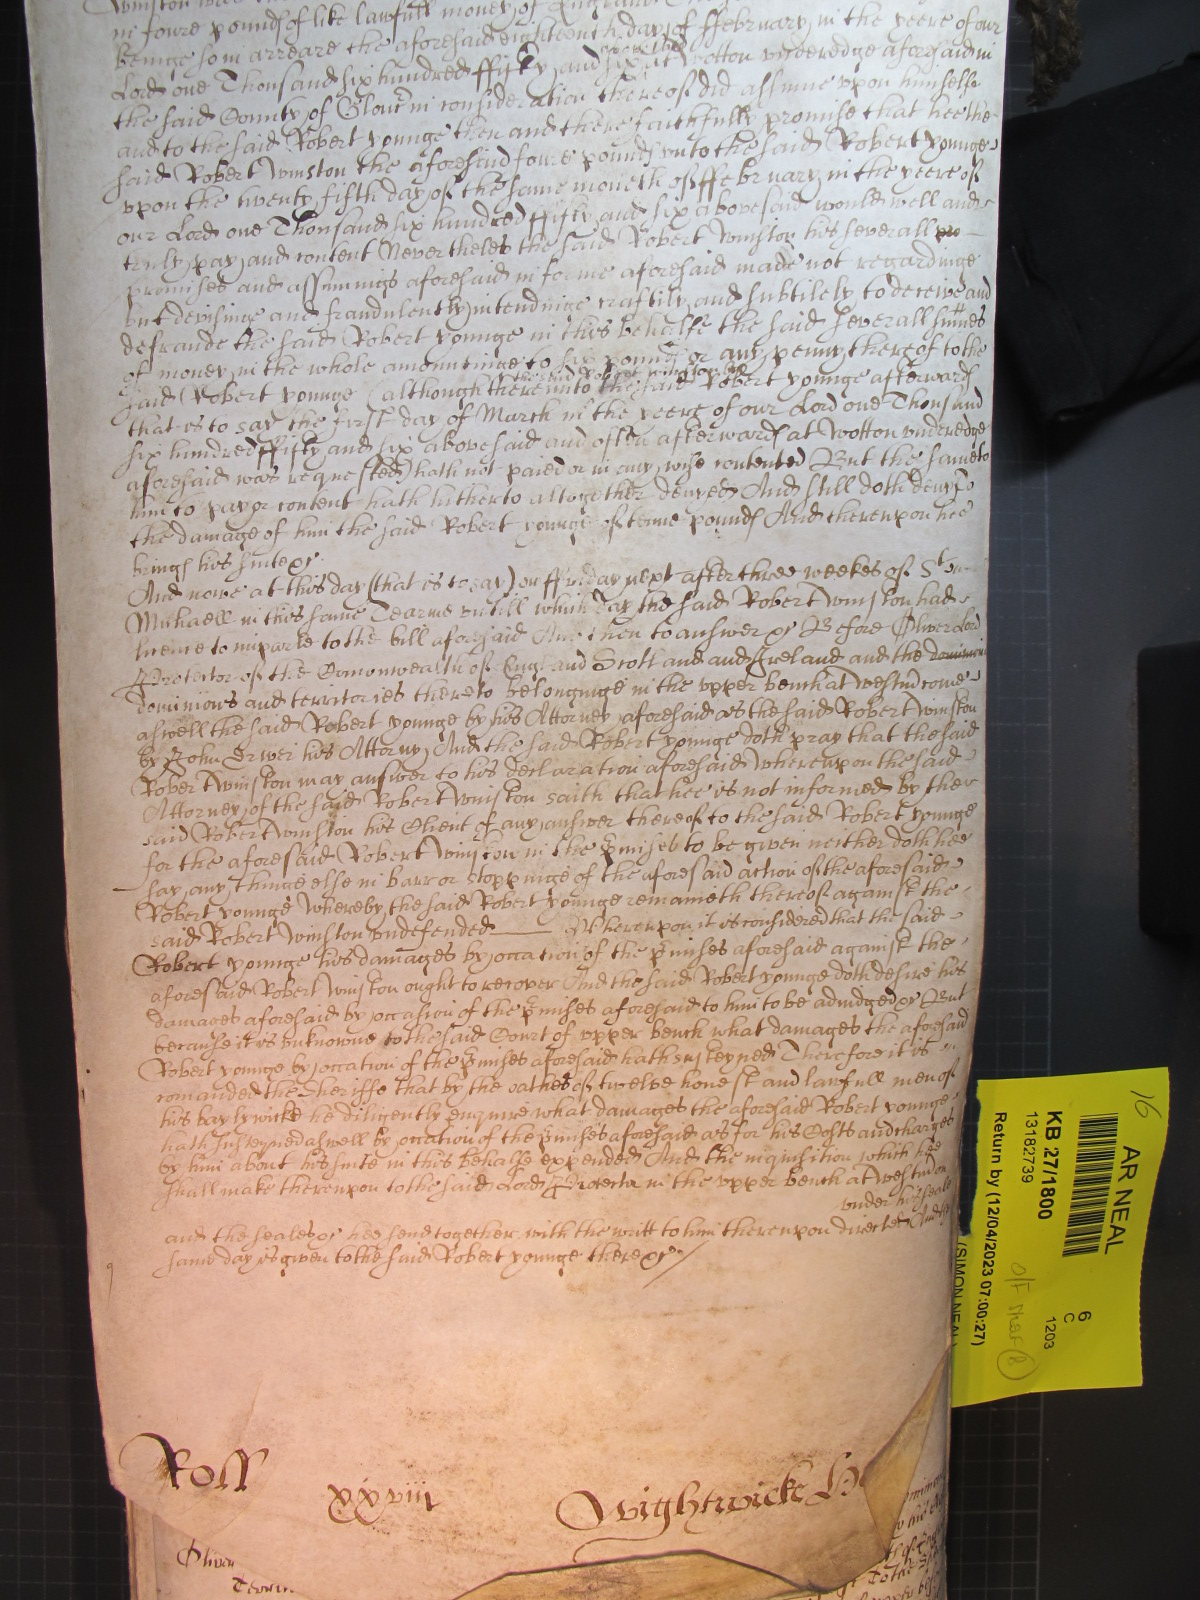 in foure pounds of like lawfull money of England
beinge so in arreare the aforesaid eighteenth day of ffebruary in the yeere of our
Lord one Thousand six hundred ffifty and six at Wotton underedge aforesaid in
the said County of Glouc in consideration thereof did assume upon himselfe
and to the said Robert younge then and there faithfully promise that hee the
said Robert Winston the aforesaid foure pounds unto the said Robert younge
upon the twenty fifth day of the same moneth of ffebruary in the yeere of
our Lord one Thousand six hundred ffifty and six abovesaid would well and
truly pay and content Neverthelesse the said Robert Winston his severall
promises and assumings aforesaid in forme aforesaid made not regardinge
but devisinge and fraudulently intendinge craftily and subtilely to deceive and
defraude the said Robert younge in this behalfe the said severall summes
of money in the whole amountinge to six pounds or any penny thereof to the
said Robert younge (although thereunto the said Robert Winston by the said Robert younge afterwards
that is to say the first day of March in the yeere of our Lord one Thousand
six hundred ffifty and six abovesaid and often afterwards at Wotton underedge
aforesaid was requested) hath not paied or in any wise contented But the same to
him to pay or content hath hitherto altogether denyed And still doth deny To
the damage of him the said Robert younge of tenne pounds And thereupon hee
brings his suite &c
And nowe at this day (that is to say) on ffriday next after three weekes of St
Michaell in this same Tearme untill which day the said Robert Winston had
licence to imparle to the bill aforesaid And then to answer &c Before Oliver Lord
Protector of the Comonwealth of England Scotland and Ireland and the
dominions and territories thereto belonginge in the upper bench at Westm come
aswell the said Robert younge by his Attorney aforesaid as the said Robert Winston
by John his Attorny And the said Robert younge doth pray that the said
Robert Winston may answer to his declaration aforesaid whereupon the said
Attorney of the said Robert Winston saith that hee is not informed by the
said Robert Winston his Client of any answer thereof to the said Robert younge
for the aforesaid Robert Winston in the pmises to be given neither doth hee
say any thinge else in barr or stoppinge of the aforesaid action of the aforesaid
Robert younge Whereby the said Robert younge remaineth thereof against the
said Robert Winston undefended Whereupon it is considered that the said
Robert younge his damages by occation of the pmises aforesaid against the
aforesaid Robert Winston ought to recover And the said Robert younge doth desire his
damages aforesaid by occasion of the pmises aforesaid to him to be adiudged &c But
because it is unknowne to the said Court of upper bench what damages the aforesaid
Robert younge by occation of the pmises aforesaid hath susteyned Therefore it is
comanded the Sheriffe that by the oathes of twelve honest and lawfull men of
his baylywicke he diligently enquire what damages the aforesaid Robert younge
hath susteyned aswell by occation of the pmises aforesaid as for his Costs and charges
by him about his suite in this behalfe expended And the inquisition which hee
shall make thereupon to the said Lord Protector in the upper bench at Westm on
under his seale
and the seales &c hee send together with the writt to him thereupon directed And the
same day is given to the said Robert younge there &c
Roll xxviii Wightwicke
Oliver
16
AR NEAL
KB 27/1800
13182739
6
C
1203
Return by (12/04/2023 07:00:27)
(SIMON NEAL)